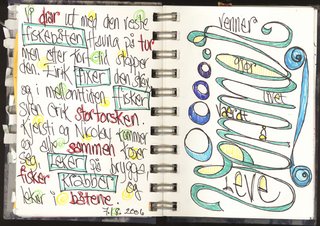 Vi drar ut med den neste
fiskebåten Havung på tur
men etter kort tid stopper
den. Erik fikser den sken
og i mellomtiden fisker
Sven Erik stortorsken.
Kjersti og Nikolay kommer
og alle sammen koser
seg, leker på brygga
fisker krabber og
leker i båtene.
7/8. 2006
venner
gjør
livet
verdt å
Leve